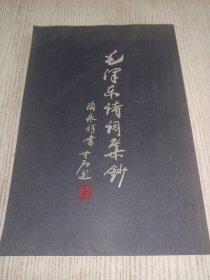 毛泽东诗词集钞
陶永祥书